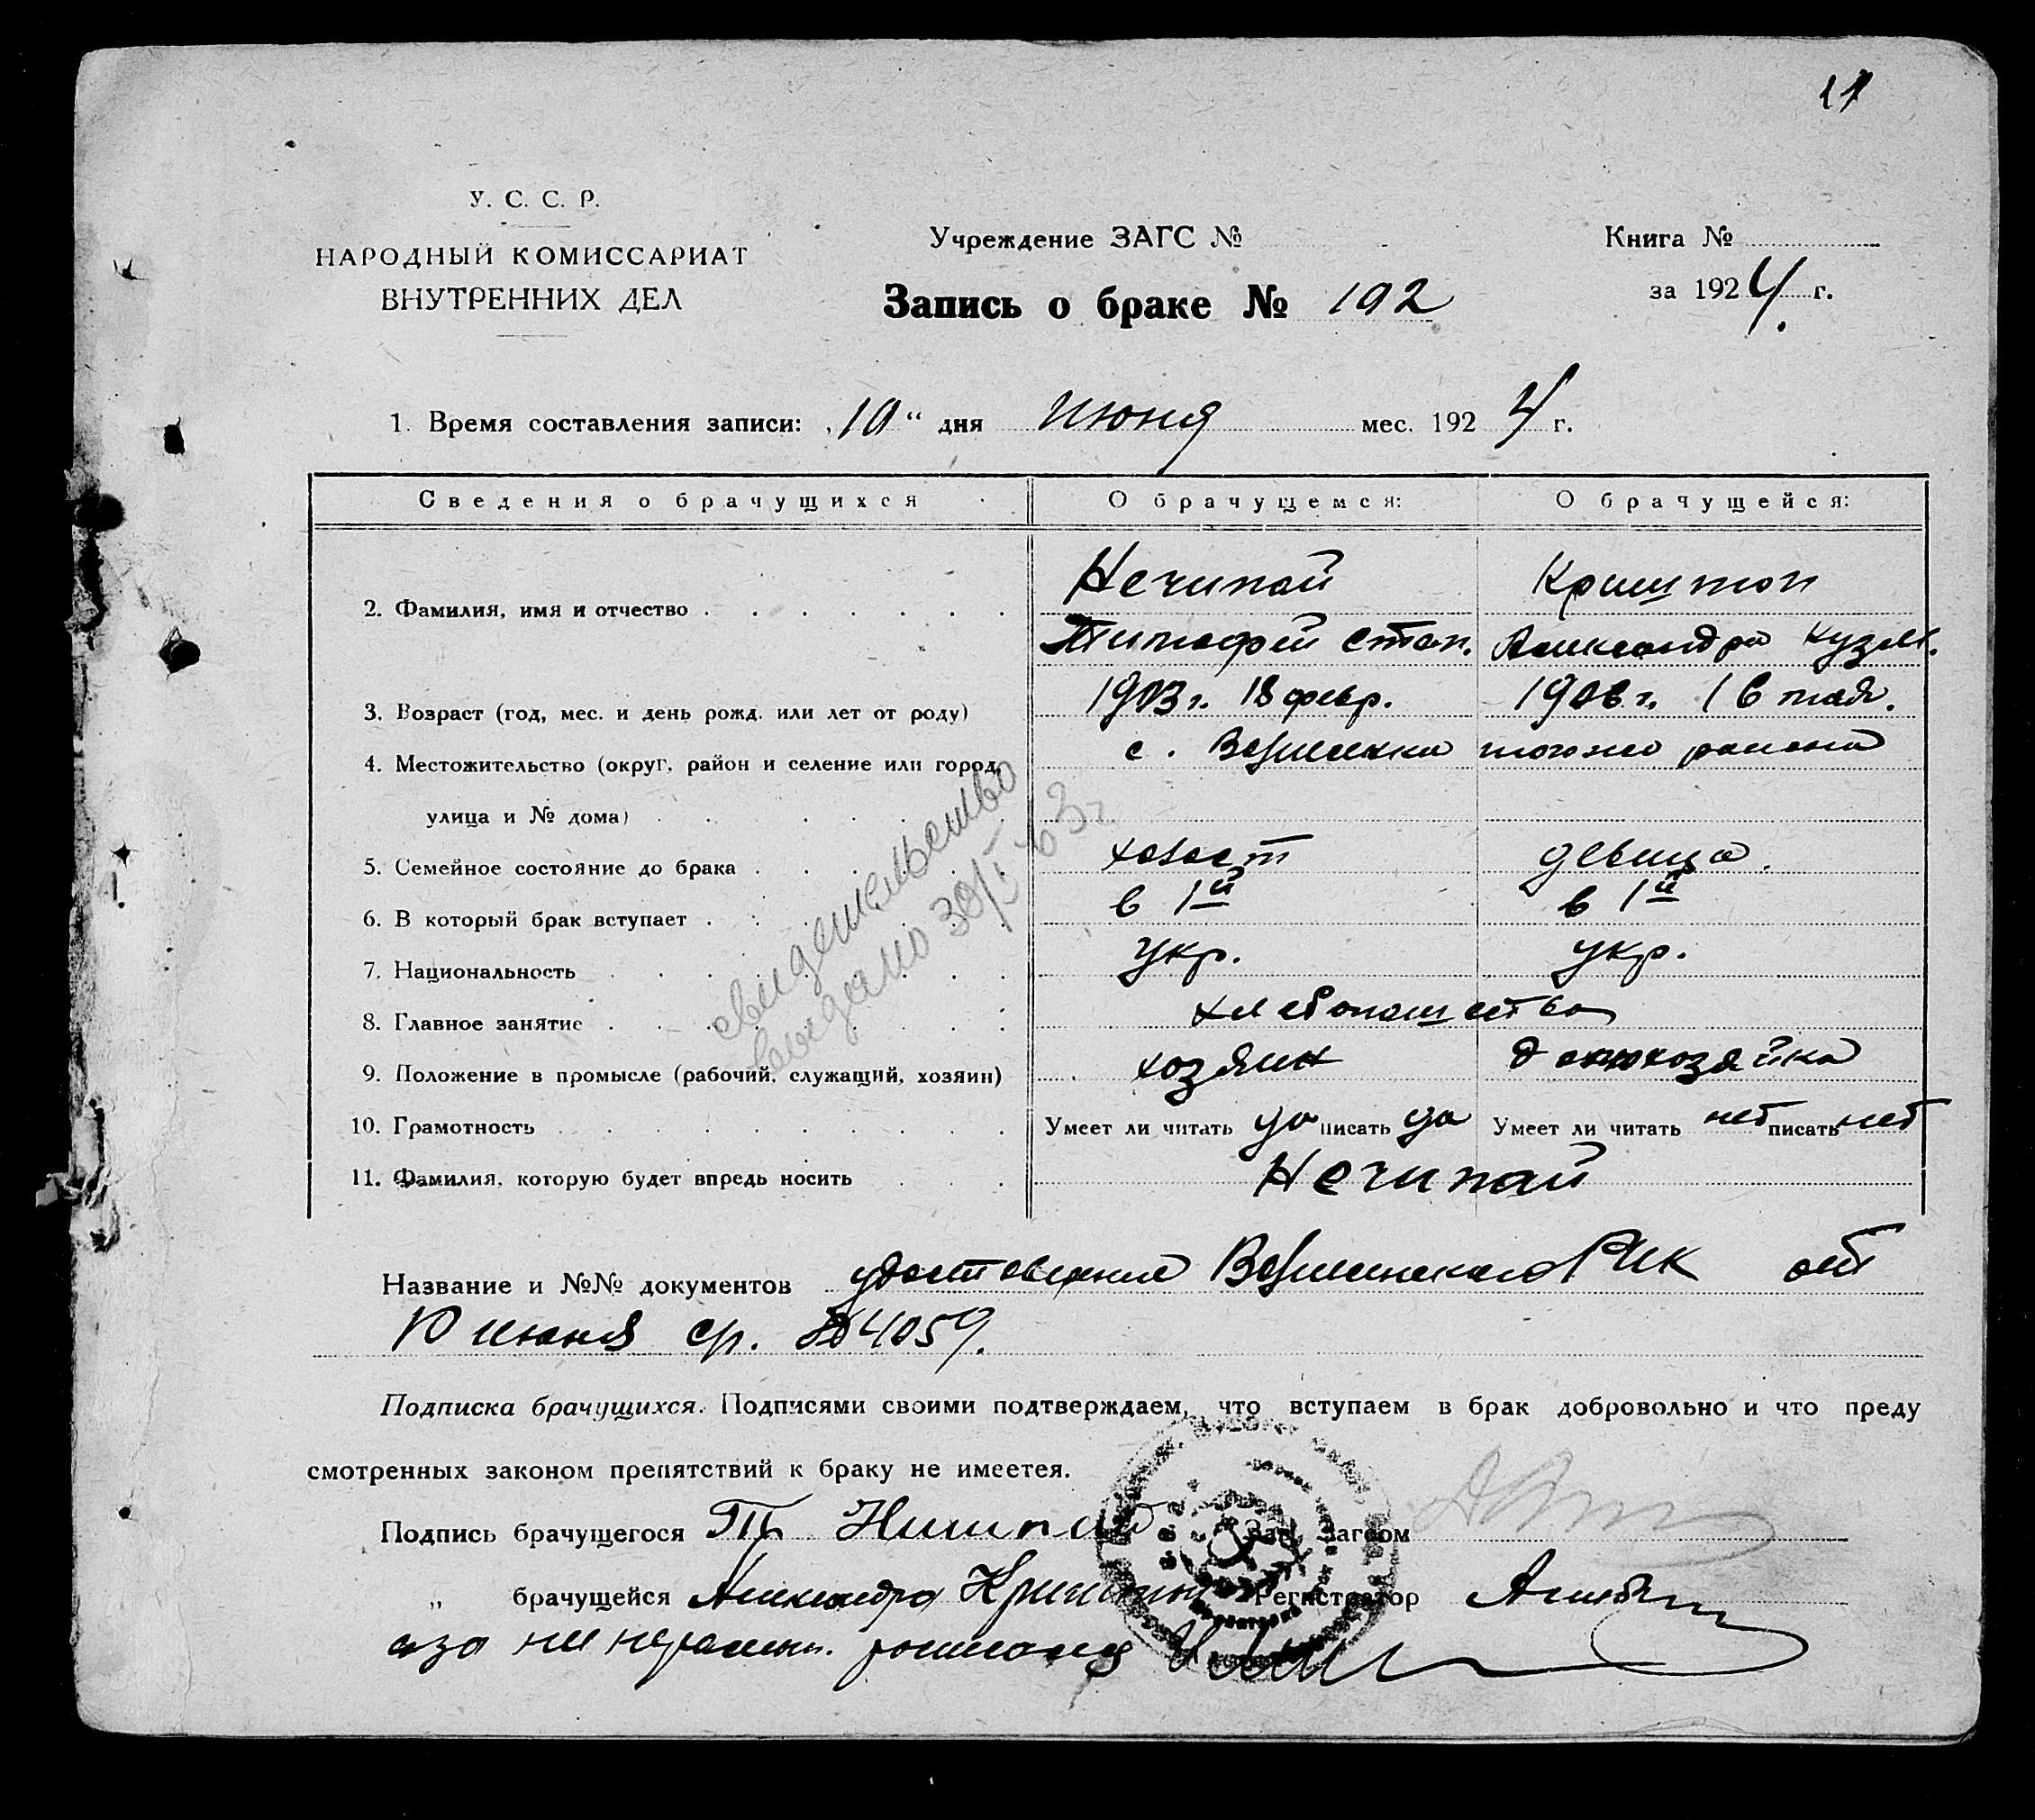 11
У. С. С. Р.
НАРОДНЫЙ КОМИССАРИАТ
ВНУТРЕННИХ ДЕЛ
Учреждение ЗАГС №
Книга №
Запись о браке № 192
за 1924 г.
1. Время составления записи: „10“ дня июня мес. 1924 г.
Сведения о брачущихся О брачущемся: О брачущейся:
Нечипай Криштоп
2. Фамилия, имя и отчество
Тимофей Степ. Александра Кузм.
3. Возраст (год, мес. и день рожд. или лет от роду) 1903 г. 18 февр. 1906 г. 16 мая.
4. Местожительство (округ, район и селение или город, с. района
улица и № дома)
5. Семейное состояние до брака холост девица.
6. В который брак вступает в 1й в 1й
7. Национальность укр. укр.
8. Главное занятие хлебопашество
9. Положение в промысле (рабочий, служащий, хозяин) хозяин домохозяйка
10. Грамотность Умеет ли читать да писать да Умеет ли читать нет писать нет
11. Фамилия, которую будет впредь носить Нечипай
свидетельство
выдано 30/I 63 г.
Название и №№ документов удостоверение РИК от
10 июня ср. № 4059.
Подписка брачущихся. Подписями своими подтверждаем, что вступаем в брак добровольно и что преду
смотренных законом препятствий к браку не имеется.
Подпись брачущегося Нишпай Зав. Загсом
„ брачущейся Александра Криштоп Регистратор
а за неграмотн.